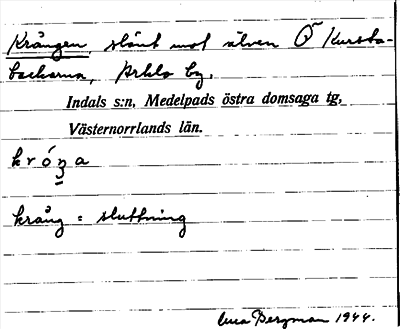 Krången, slänt mot älven Ö Kursta-
backarna, Arklo by,
Indals s:n, Medelpads östra domsaga tg,
Västernorrlands län.
króŋa
krång = sluttning
Bergman 1944.